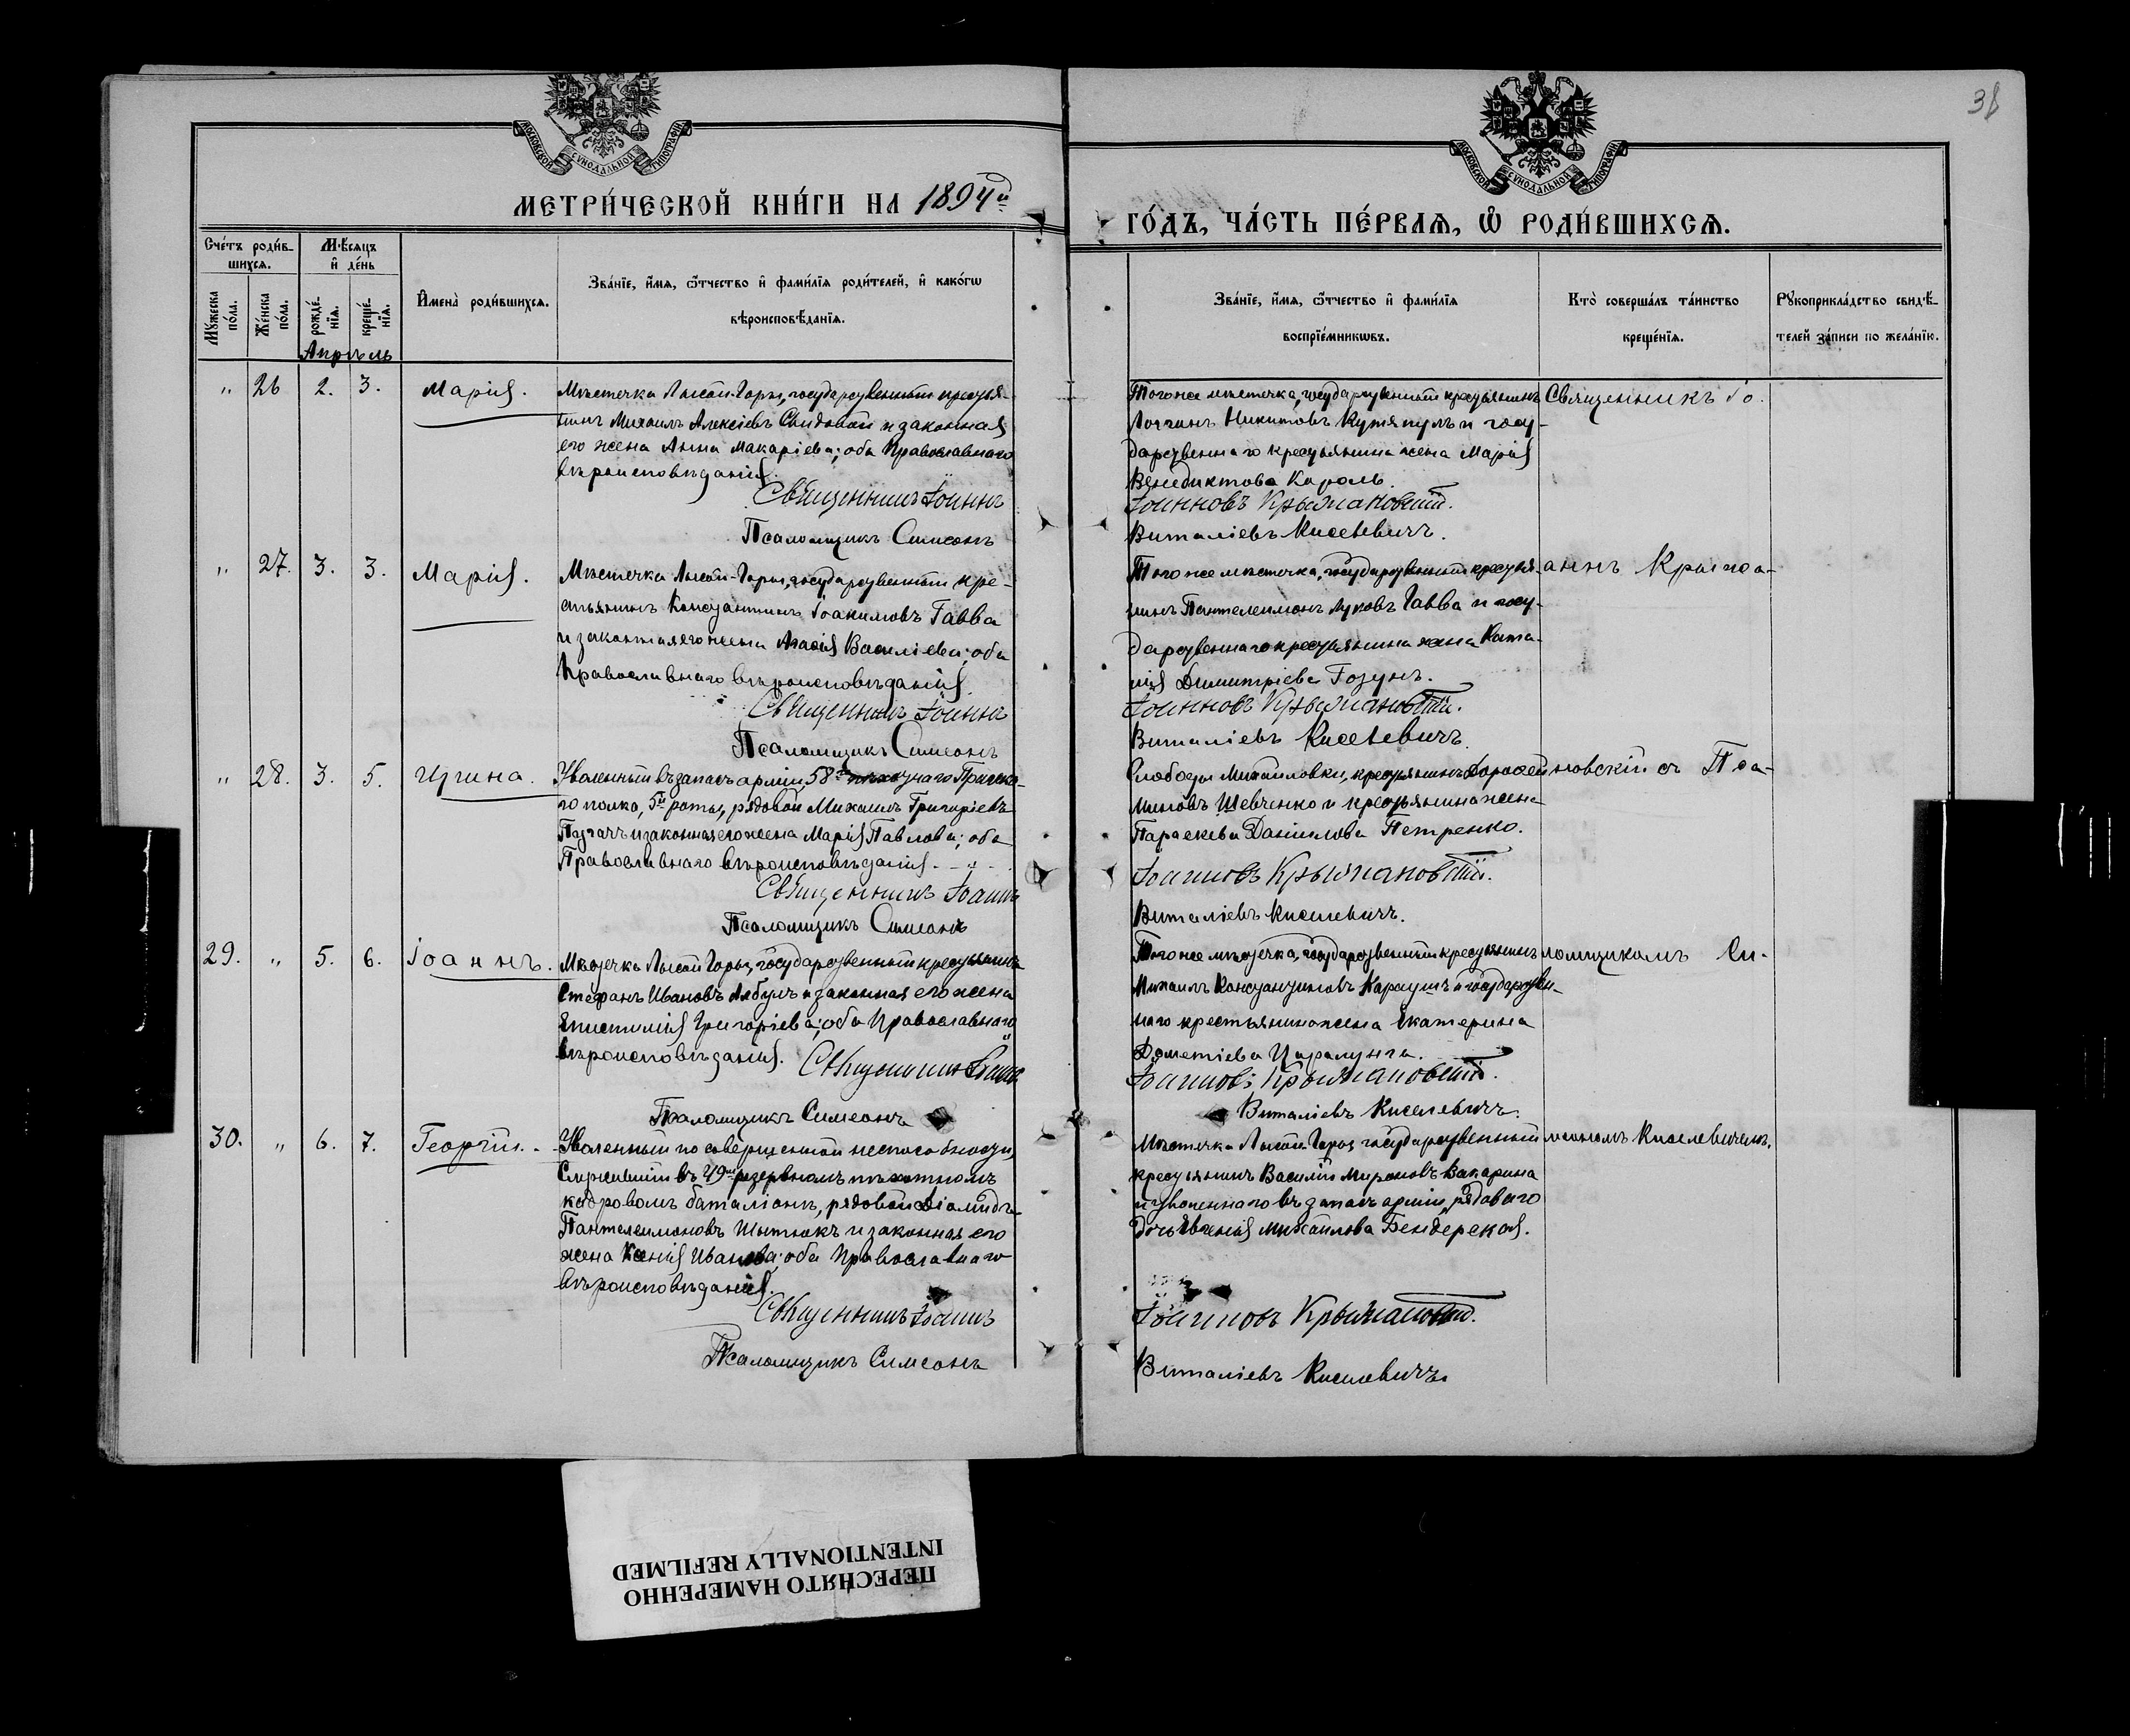 38
МОСКОВСКОЙ СѴНОДАЛЬНОЙ ТИПОГРАФІИ
МОСКОВСКОЙ СѴНОДАЛЬНОЙ ТИПОГРАФІИ
МЕТРИ́ЧЕСКОЙ КНИ́ГИ НА 1894й
ГО́ДЪ, ЧА́СТЬ ПЕ́РВАѦ, Ѡ҆ РОДИ́ВШИХСѦ.
Сче́тъ роди́в-
шихсѧ.
Мѣ́сѧцъ
и҆ де́нь
Мꙋ́жеска по́ла.
Же́нска по́ла.
рожде́-нїѧ.
креще́-нїѧ.
И҆мена̀ роди́вшихсѧ.
Зва́нїе, и҆́мѧ, ѻ҆́тчество и҆ фами́лїѧ роди́телей, и҆ како́гѡ
вѣроисповѣ́данїѧ.
Зва́нїе, и҆́мѧ, ѻ҆́тчество и҆ фами́лїѧ
воспрїе́мникѡвъ.
Кто̀ соверша́лъ та́инство
креще́нїѧ.
Рꙋкоприкла́дство свидѣ́-
телей за́писи по жела́нїю.
Апрѣль
„ 26 2. 3. Марія.
Мѣстечка Лысой-Горы, государственный крестья-
нинъ Михаилъ Алексіевъ Свидовой и законная
его жена Анна Макаріева; оба Православнаго
вѣроисповѣданія.
Священникъ Іоаннъ
Псаломщикъ Симеонъ
Тогоже мѣстечка, государственный крестьянинъ
Никитовъ и госу-
дарственнаго крестьянина жена Марія
Венедиктова Король.
Іоанновъ Крыжановскій.
Виталіевъ Киселевичъ.
Священникъ Іо-
„ 27. 3. 3. Марія.
Мѣстечка Лысой-Горы, государственный кре-
стьянинъ Константинъ Іоакимовъ Гавва
и законная его жена Агафія Василіева; оба
Православнаго вѣроисповѣданія.
Священникъ Іоаннъ
Псаломщикъ Симеонъ
Тогоже мѣстечка, государственный крестья-
нинъ Пантелеимонъ Луковъ Гавва и госу-
дарственнаго крестьянина жена Ната-
лія Димитріева Гозунъ.
Іоанновъ Крыжановскій.
Виталіевъ Киселевичъ.
аннъ Крыжа-
„ 28. 3. 5. Ирина.
Уволенный въ запасъ арміи, 58го пѣхотнаго Прагска-
го полка, 5й роты, рядовой Михаилъ Григоріевъ
и законная его жена Марія Павлова; оба
Православнаго вѣроисповѣданія.
Священникъ Іоаннъ
Псаломщикъ Симеонъ
Слободы Михайловки, крестьянинъ
Шевченко и крестьянина жена
Параскева Даніилова Петренко.
Іоанновъ Крыжановскій.
Виталіевъ Киселевичъ.
новскій съ Пса-
29. „ 5. 6. Іоаннъ.
Мѣстечка Лысой Горы, государственный крестьянинъ
Стефанъ Ивановъ и законная его жена
Епистимія Григоріева; оба Православнаго
вѣроисповѣданія. Священникъ Іоаннъ
Псаломщикъ Симеонъ
Тогоже мѣстечка, государственный крестьянинъ
Михаилъ Константиновъ Караушъ и государствен-
наго крестьянина жена Екатерина
Дометіева Царалунга.
Іоанновъ Крыжановскій.
Виталіевъ Киселевичъ.
ломщикомъ Си-
30. „ 6. 7. Георгій.
Уволенный по совершенной неспособности,
Служившій въ 49мъ резервномъ пѣхотномъ
кадровомъ баталіонѣ, рядовой Діомидъ
Пантелеимоновъ и законная его
жена Ксенія Иванова; оба Православнаго
вѣроисповѣданія.
Священникъ Іоаннъ
Псаломщикъ Симеонъ
Мѣстечка Лысой-Горы государственный
крестьянинъ Василій Мироновъ Вакарина
и уволеннаго въ запасъ арміи, рядоваго
дочь Евгенія Михайлова Бендерская.
Іоанновъ Крыжановскій.
Виталіевъ Киселевичъ.
меономъ Киселевичемъ.
ПЕРЕСНЯТО НАМЕРЕННО
INTENTIONALLY REFILMED